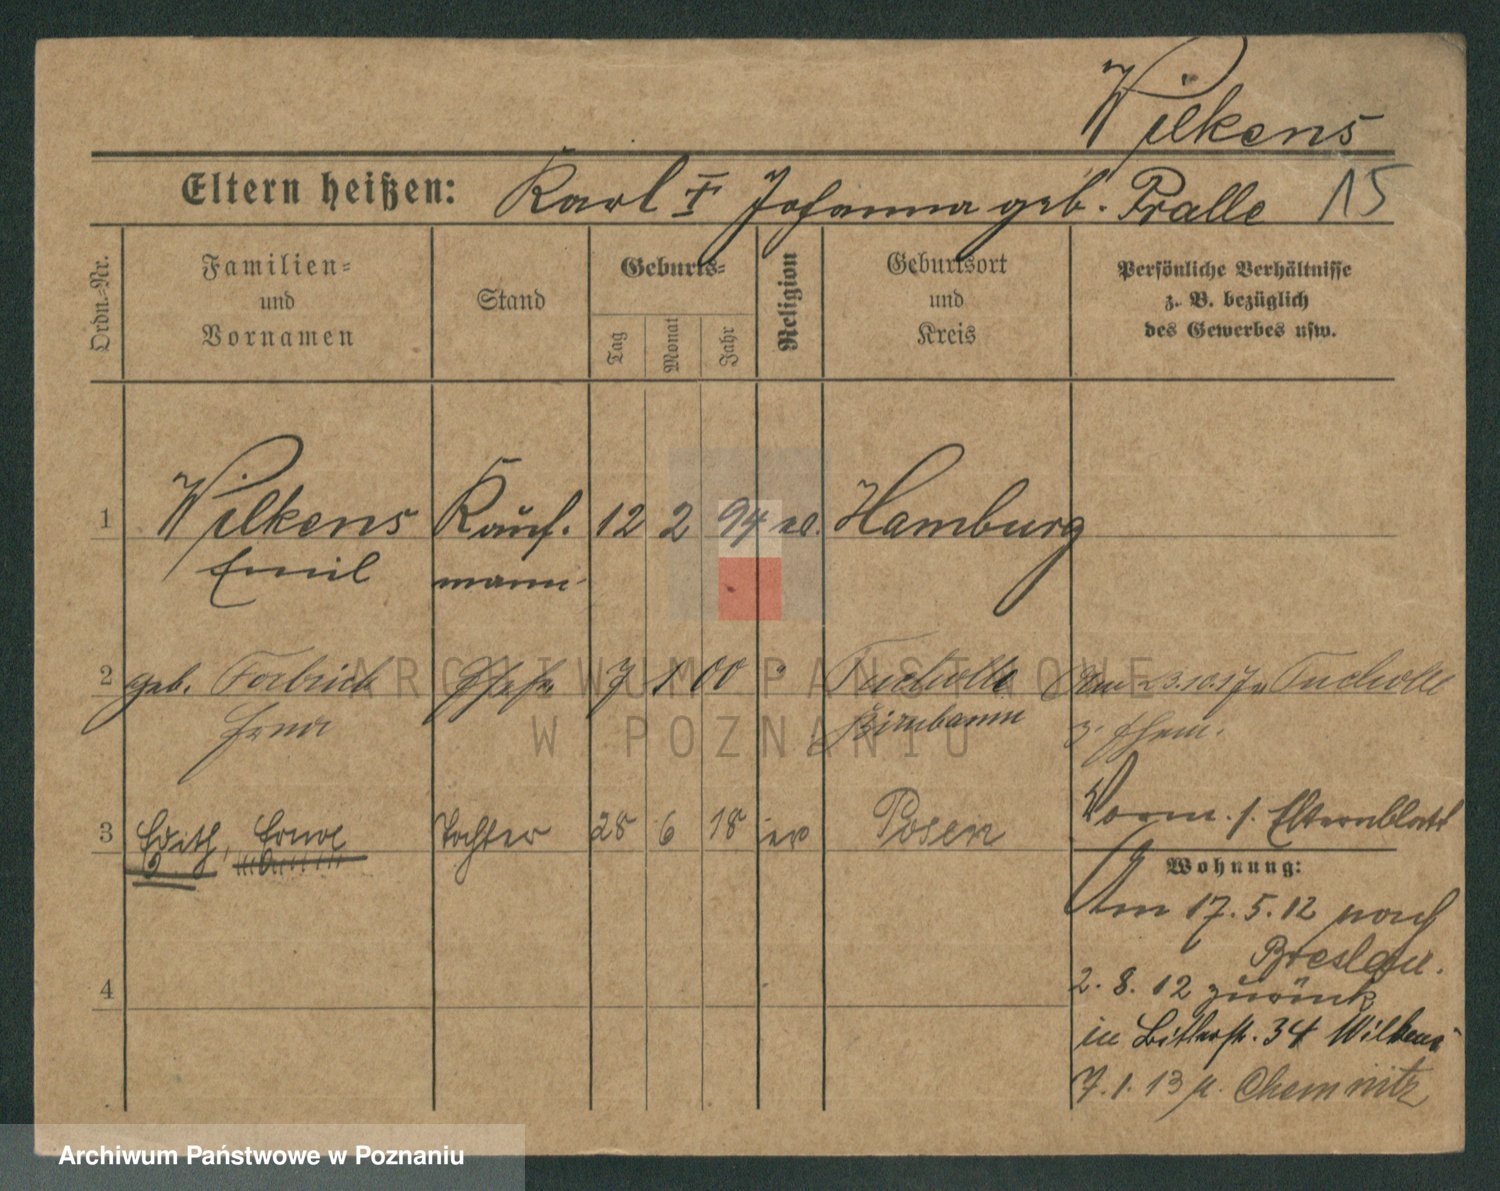 Wilkens
Eltern heißen: Karl † Johanna geb. Pralle 15
Ordn.-Nr.
Familien- und Vornamen
Stand
Geburts-
Tag
Monat
Jahr
Religion
Geburtsort und Kreis
Persönliche Verhältnisse z. B. bezüglich des Gewerbes usw.
1 Wilkens Kauf- 12 2 94 Hamburg
Emil mann
2 geb. Ehefr. 7 1 00 " Tucholle Am 23.10.17 in Tucholle
Erna Birnbaum z. Ehem.
Vorm. s. Elternblatt
3 Edith, Erna Tochter 28 6 18 ev Posen
Wohnung:
Am 17.5.12 nach
Breslau.
4 2.8.12 zurück
in 34 Wilkens
7.1.13 n. Chemnitz
ARCHIWUM PAŃSTWOWE
W POZNANIU
Archiwum Państwowe w Poznaniu